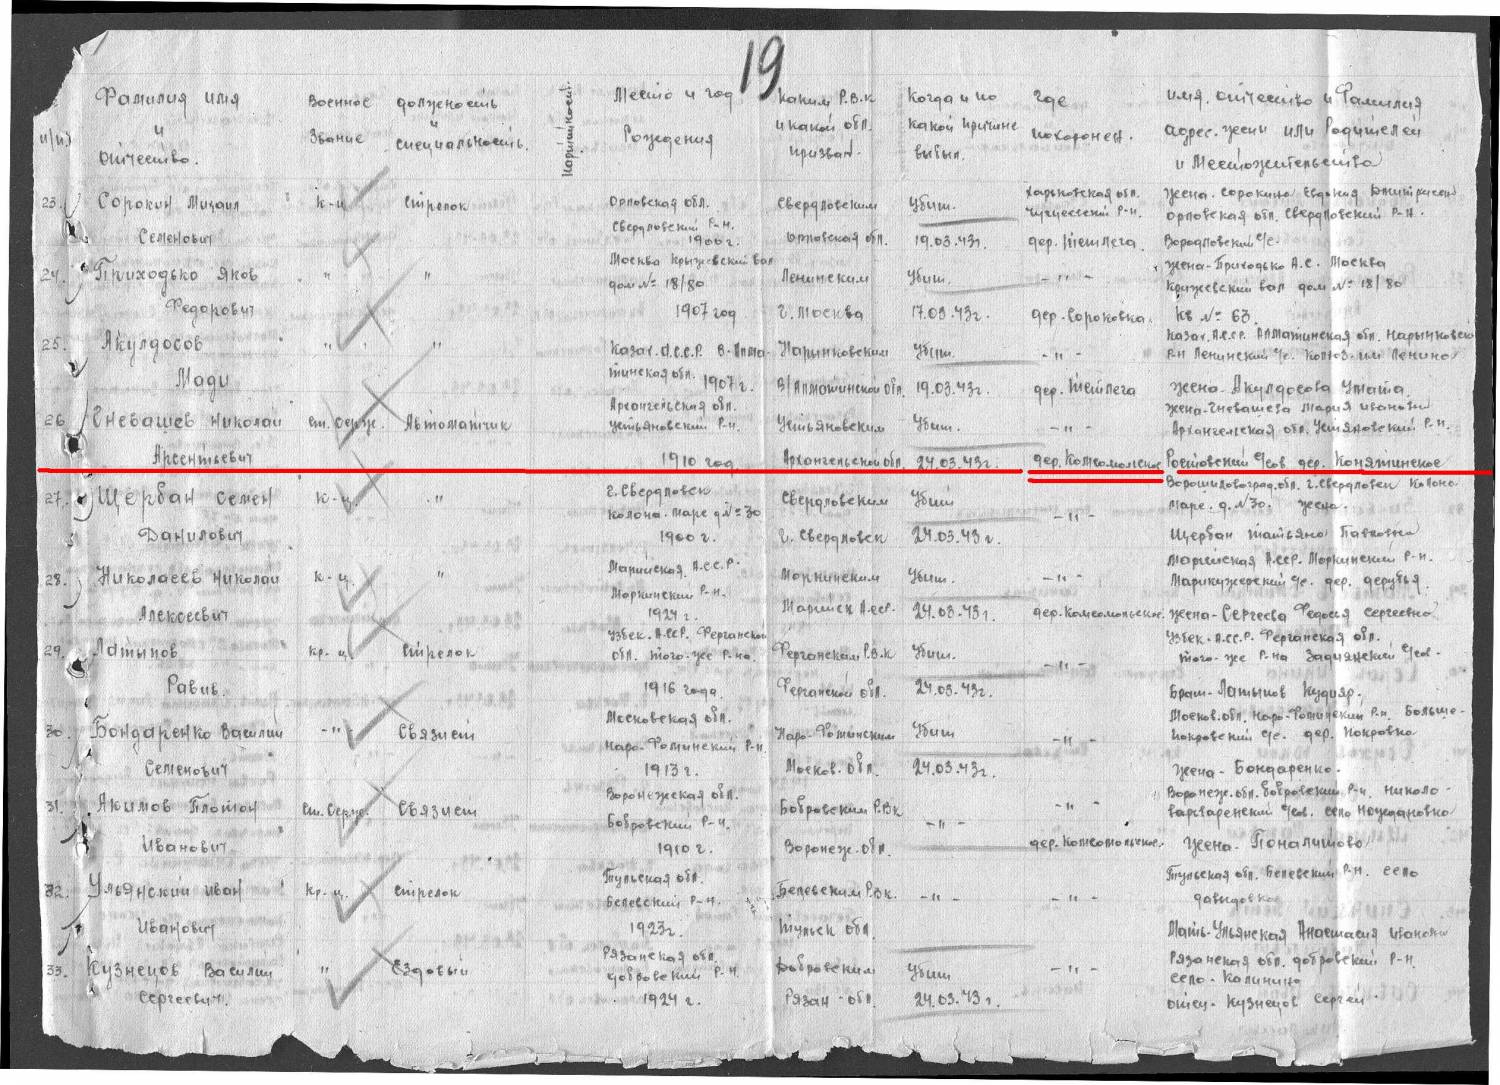 19
Фамилия имя и отчество.
Военное звание
должность и специальность.
Партийность.
Место и год Рождения
каким Р.В.К и какой обл. призван.
Когда и по какой причине выбыл.
где похоронен.
имя, отчество и Фамилия адрес. жены или Родителей и Местожительства
23. Сорокин Михаил к-ц стрелок Орловская обл. Свердловским Убит. Харьковская обл. Чугуевский Р-н. жена-Сорокина Евдокия
Семенович Свердловский Р-н. 1900 г. Орловская обл. 19.03.43г. дер. Тетлега. Орловская обл. Свердловский Р-н.
24. Приходько Яков " " Москва Крыжевский вал Ленинским Убит. -"- жена-Приходько А.С. Москва
дом № 18/80 Крижевский вал дом № 18/80
Федорович 1907 год г. Москва 17.03.43г. дер. Сороковка. кв № 63.
25. Акулдосов " " Казах. А.С.С.Р. В-Алма- Нарынковским Убит. -"- Казах. А.С.С.Р. Алматинская обл. Нарынковский
Р-н Ленинский с/с. колхоз-им Ленина
Моди тинская обл. 1907 г. В/Алматинской обл. 19.03.43г. дер. Тетлега жена-Акулдосова
26 Гневашев Николай ст. серж. Автоматчик Архангельская обл. Устьяновский Р-н. Устьяновским Убит. -"- жена-Гневашева Мария Ивановна
Архангельская обл. Устяновский Р-н.
Арсентьевич 1910 год Архангельской обл. 24.03.43г. дер. Комсомольское Ростовский с/сов. дер. Конятинское
27. Щербан Семен к-ц " г. Свердловск Свердловским Убит -"- Ворошиловоград. обл. г. Свердловск колона
колона. маре д № 30 маре. д. № 30. жена.
Данилович 1900 г. г. Свердловск 24.03.43г. Щербан Татьяна Павловна
28. Николаев Николай к-ц " Марийская А.С.С.Р. Моркинским Убит. -"- Марийская А.ССР. Моркинский Р-н.
Моркинский Р-н. Марикужерский с/с. дер.
Алексеевич 1924 г. Марийск А.сср. 24.03.43г. дер. Комсомольское. жена-Сергеева Федосья Сергеевна
29. Латыпов кр-ц стрелок Узбек. А.ССР. Ферганской Ферганским Р.В.К Убит. -"- Узбек. А.СС.Р. Ферганская обл.
обл. того-же Р-на. того-же Р-на с/сов.
Равив. 1916 года. Ферганской обл. 24.03.43г. Брат-Латыпов Кудияр.
30. Бондаренко Василий -"- Связист Московская обл. Наро-Фоминским Убит -"- Москов. обл. Наро-Фоминский Р-н. Больше-
Наро-Фоминский Р-н. покровский с/с. дер. Покровка
Семенович 1913 г. Москов. обл. 24.03.43г. жена-Бондаренко.
31. Акимов Платон ст. серж. Связист Воронежская обл. Бобровским Р.В.к. -"- -"- Воронеж. обл. Бобровский Р-н. Николо-
Бобровский Р-н. варваренский с/сов. село
Иванович. 1910 г. Воронеж. обл. дер. Комсомольское. жена-
32. Ульянский Иван кр-ц. стрелок Тульская обл. Белевским Р.В.к. -"- -"- Тульская обл. Белевский Р-н. село
Белевский Р-н. давыдовка
Иванович 1923г. Тульск обл. Мать-Ульянская Анастасия Ивановна
33. Кузнецов Василий " Ездовый Рязанская обл. Добровским Убит -"- Рязанская обл. Добровский Р-н.
Добровский Р-н. село-Калинино
Сергеевич. 1924 г. Рязан-обл. 24.03.43г. отец-Кузнецов Сергей